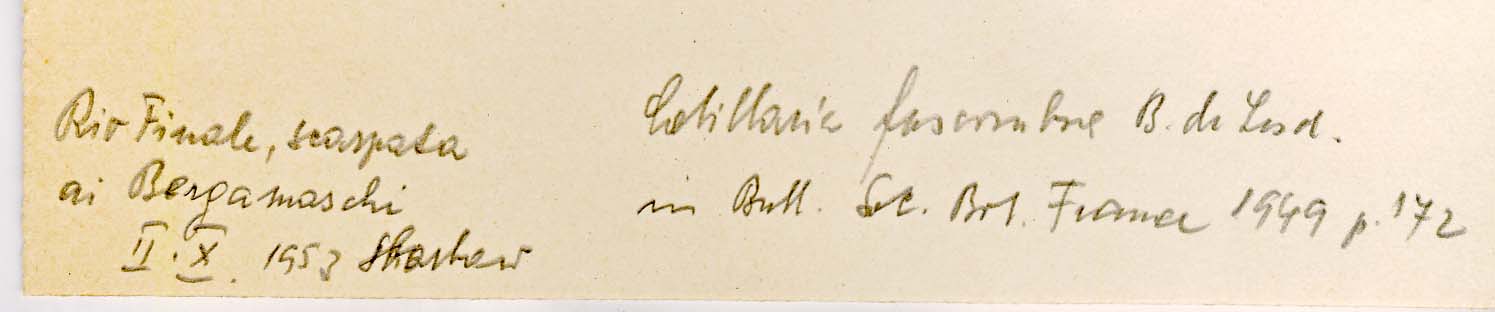 Rio Finale, scarpata
ai Bergamaschi
II. X. 1953
Catillaria fuscorubra B. de Lesd.
in Bull. Soc. Bot. France 1949 p. 172